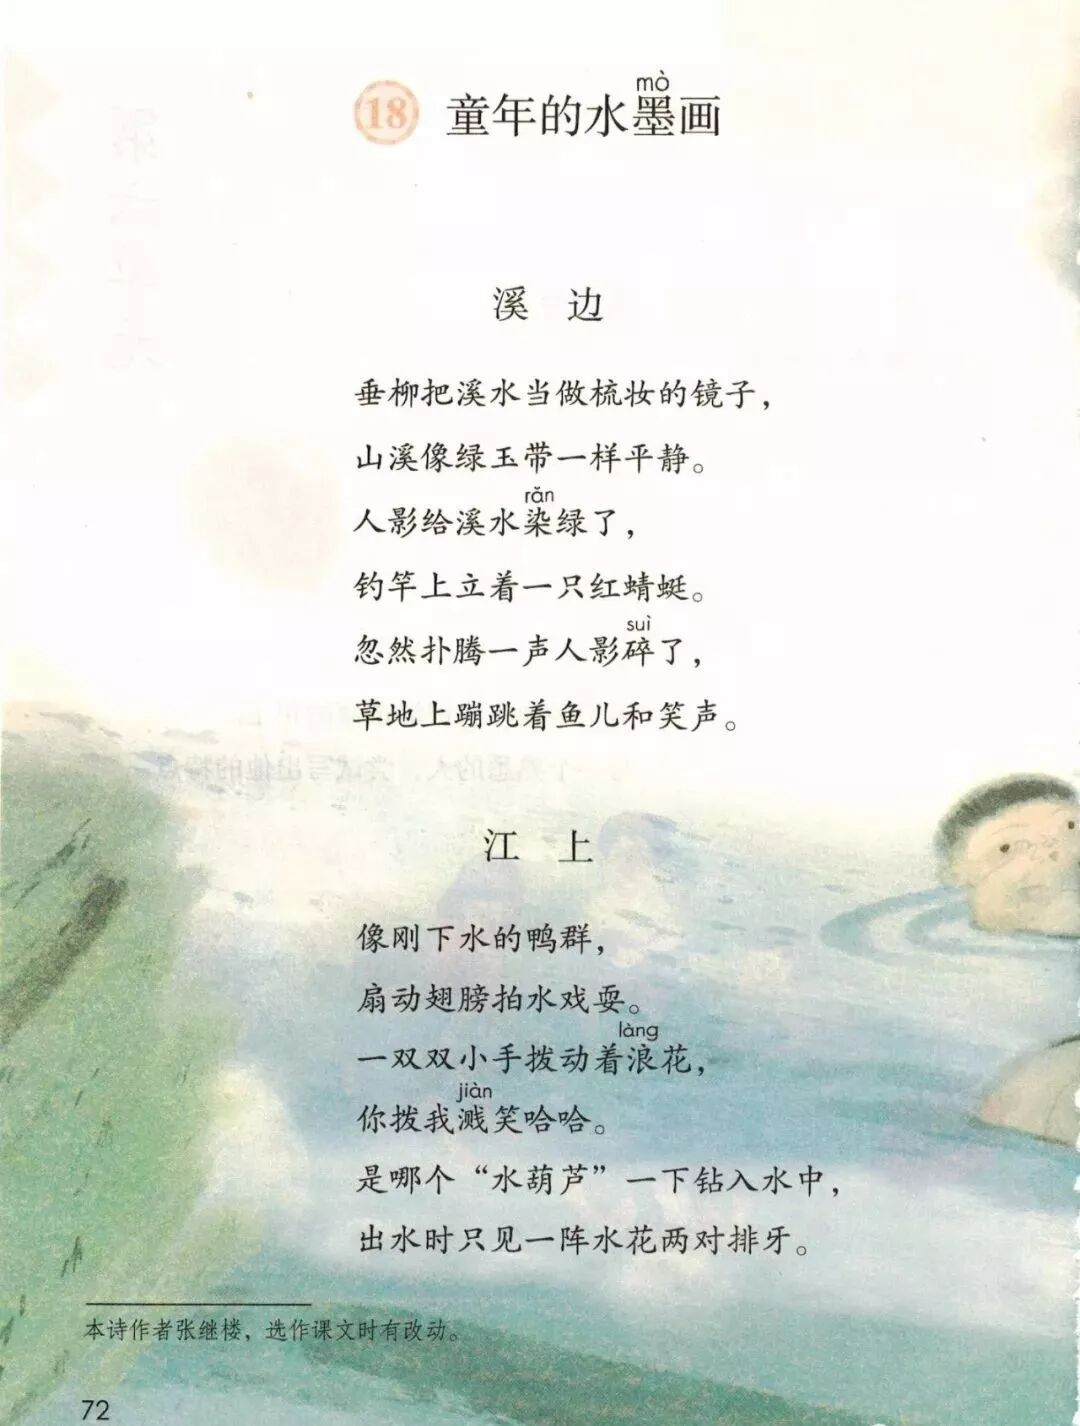 mò
18 童年的水墨画
溪 边
垂柳把溪水当做梳妆的镜子，
山溪像绿玉带一样平静。
rǎn
人影给溪水染绿了，
钓竿上立着一只红蜻蜓。
suì
忽然扑腾一声人影碎了，
草地上蹦跳着鱼儿和笑声。
江 上
像刚下水的鸭群，
扇动翅膀拍水戏耍。
làng
一双双小手拨动着浪花，
jiàn
你拨我溅笑哈哈。
是哪个“水葫芦”一下钻入水中，
出水时只见一阵水花两对排牙。
本诗作者张继楼，选作课文时有改动。
72